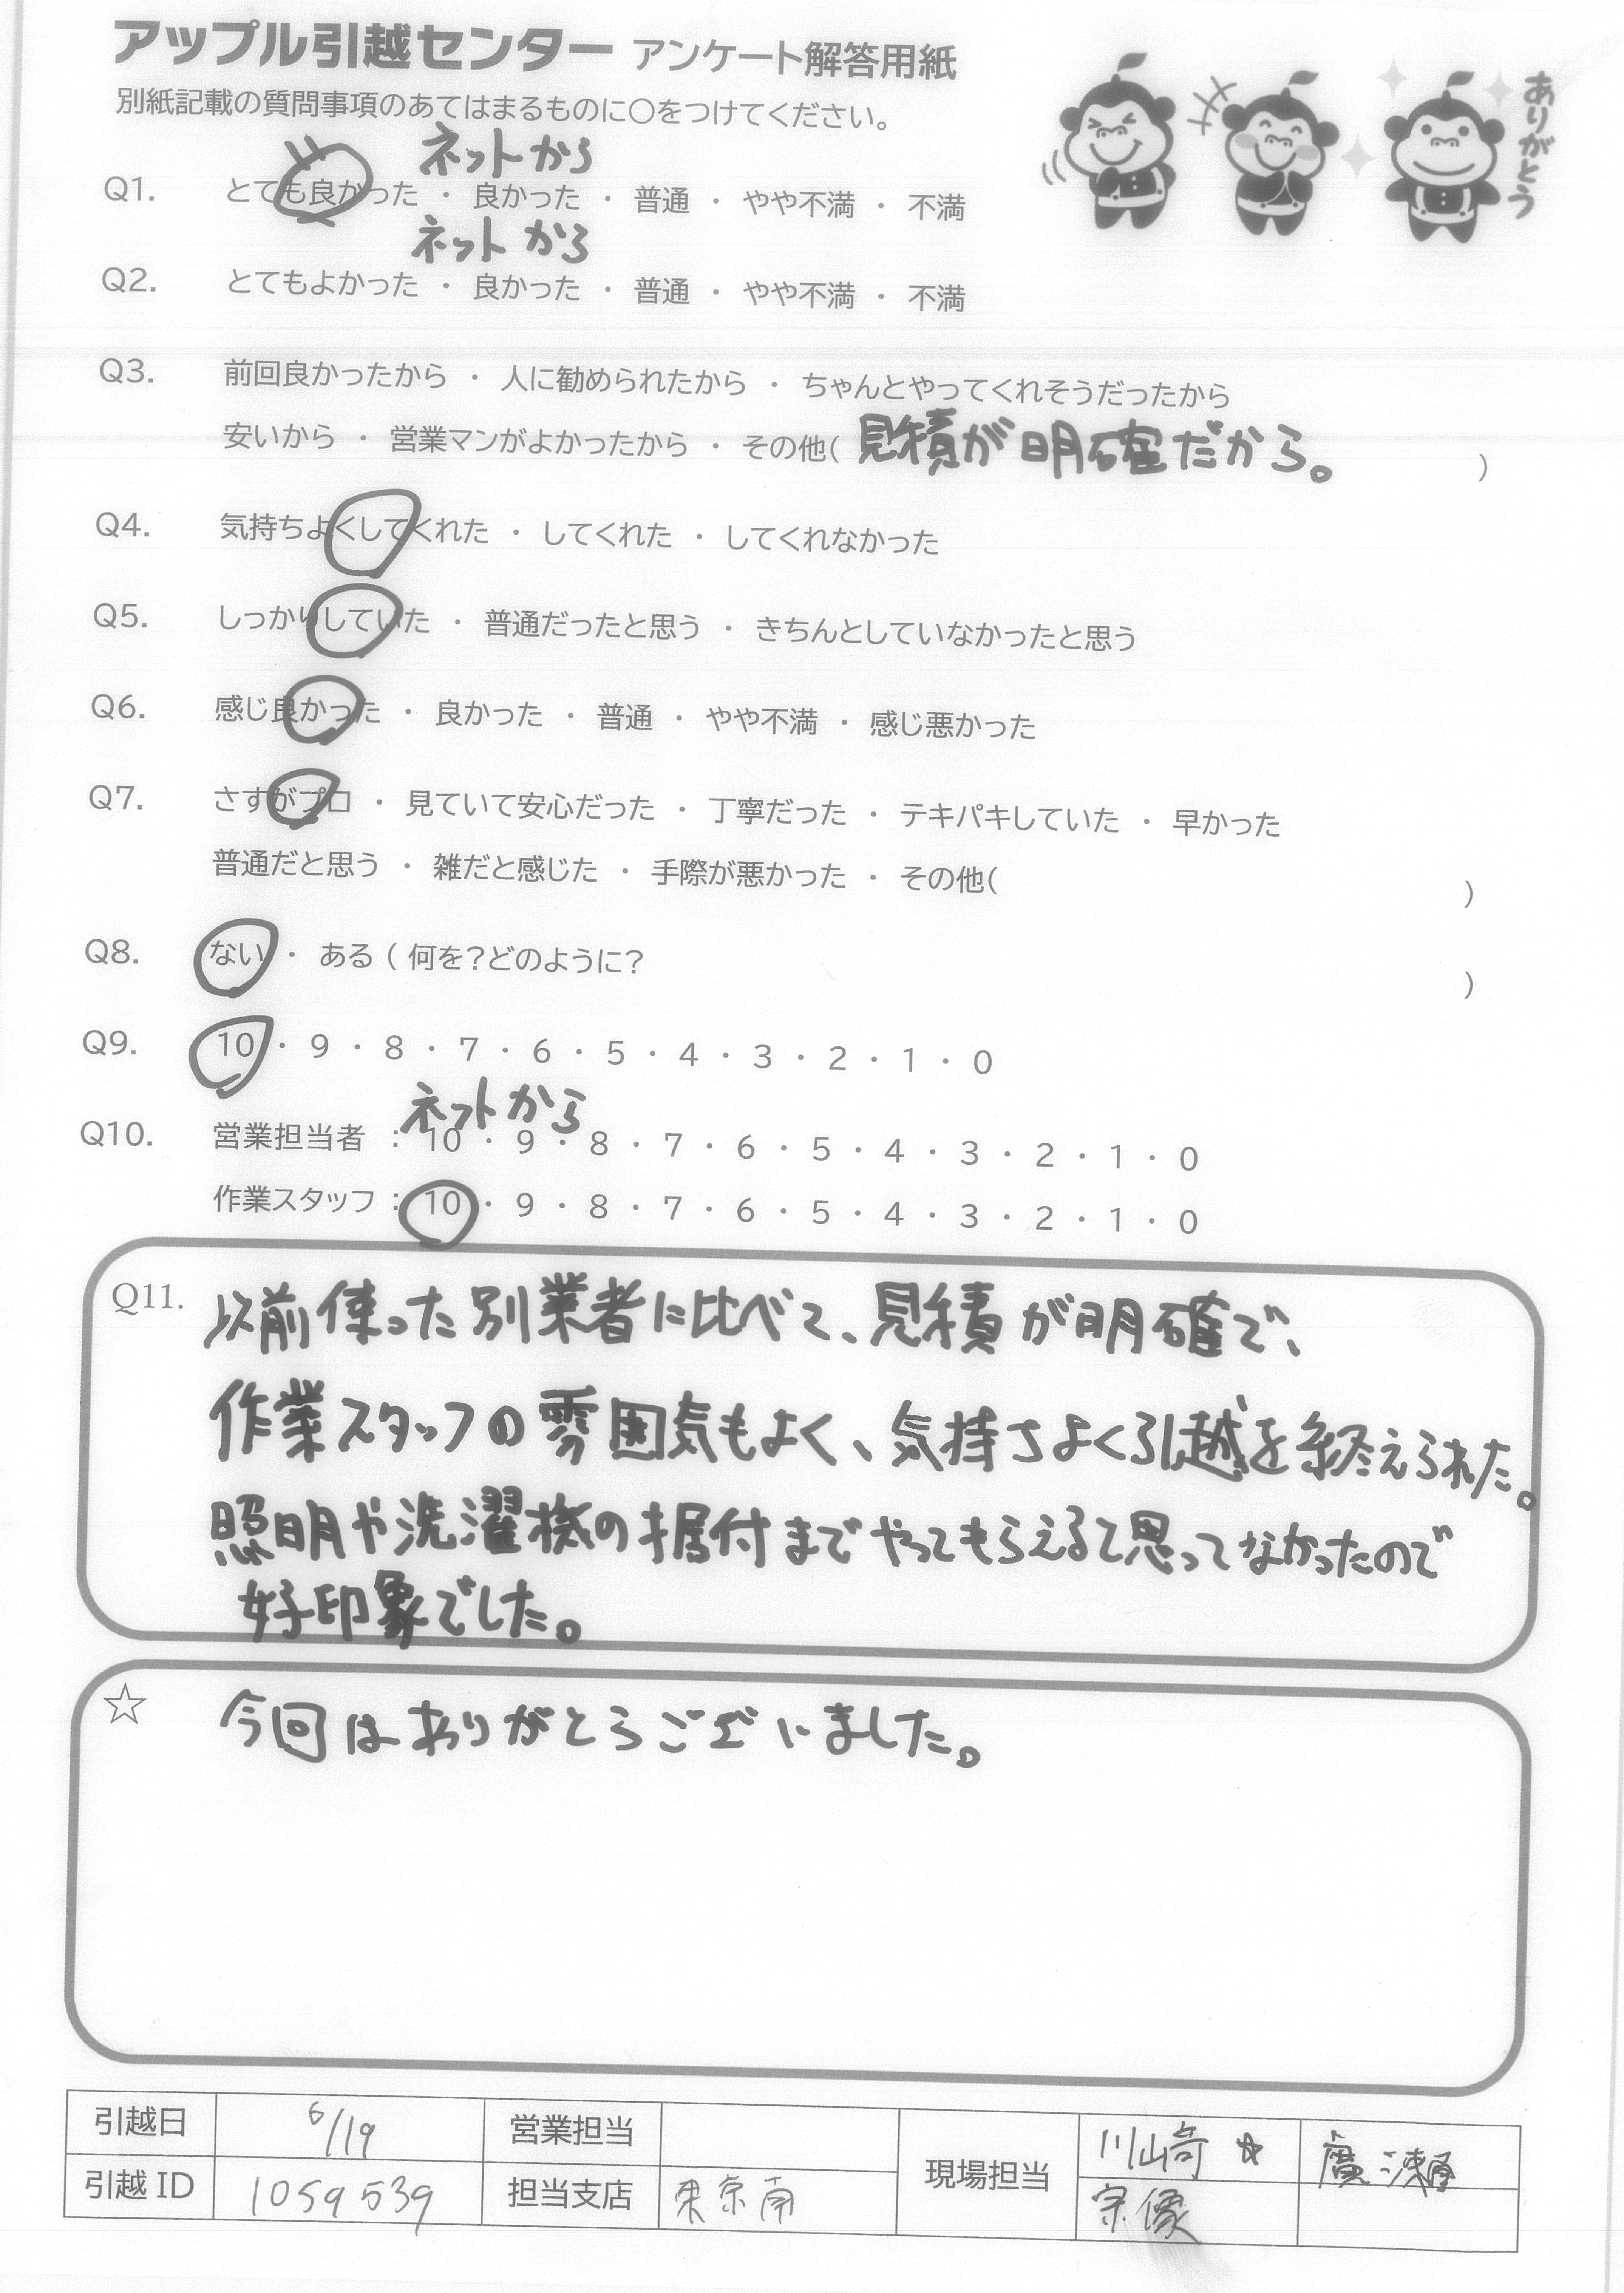 アップル引越センター アンケート解答用紙
別紙記載の質問事項のあてはまるものに○をつけてください。
ありがとう
ネットから
Q1. とても良かった ・ 良かった ・ 普通 ・ やや不満 ・ 不満
ネットから
Q2. とてもよかった ・ 良かった ・ 普通 ・ やや不満 ・ 不満
Q3. 前回良かったから ・ 人に勧められたから ・ ちゃんとやってくれそうだったから
安いから ・ 営業マンがよかったから ・ その他( 見積が明確だから。 )
Q4. 気持ちよくしてくれた ・ してくれた ・ してくれなかった
Q5. しっかりしていた ・ 普通だったと思う ・ きちんとしていなかったと思う
Q6. 感じ良かった ・ 良かった ・ 普通 ・ やや不満 ・ 感じ悪かった
Q7. さすがプロ ・ 見ていて安心だった ・ 丁寧だった ・ テキパキしていた ・ 早かった
普通だと思う ・ 雑だと感じた ・ 手際が悪かった ・ その他( )
Q8. ない ・ ある ( 何を?どのように? )
Q9. 10 ・ 9 ・ 8 ・ 7 ・ 6 ・ 5 ・ 4 ・ 3 ・ 2 ・ 1 ・ 0
ネットから
Q10. 営業担当者 : 10 ・ 9 ・ 8 ・ 7 ・ 6 ・ 5 ・ 4 ・ 3 ・ 2 ・ 1 ・ 0
作業スタッフ : 10 ・ 9 ・ 8 ・ 7 ・ 6 ・ 5 ・ 4 ・ 3 ・ 2 ・ 1 ・ 0
Q11. 以前使った別業者に比べて、見積が明確で、
作業スタッフの雰囲気もよく、気持ちよく引越を終えられた。
照明や洗濯機の据付までやってもらえると思ってなかったので
好印象でした。
☆ 今回はありがとうございました。
引越日 6/19 営業担当 現場担当 川崎 ☆ 廣瀬
引越 ID 1059539 担当支店 東京南 宗像